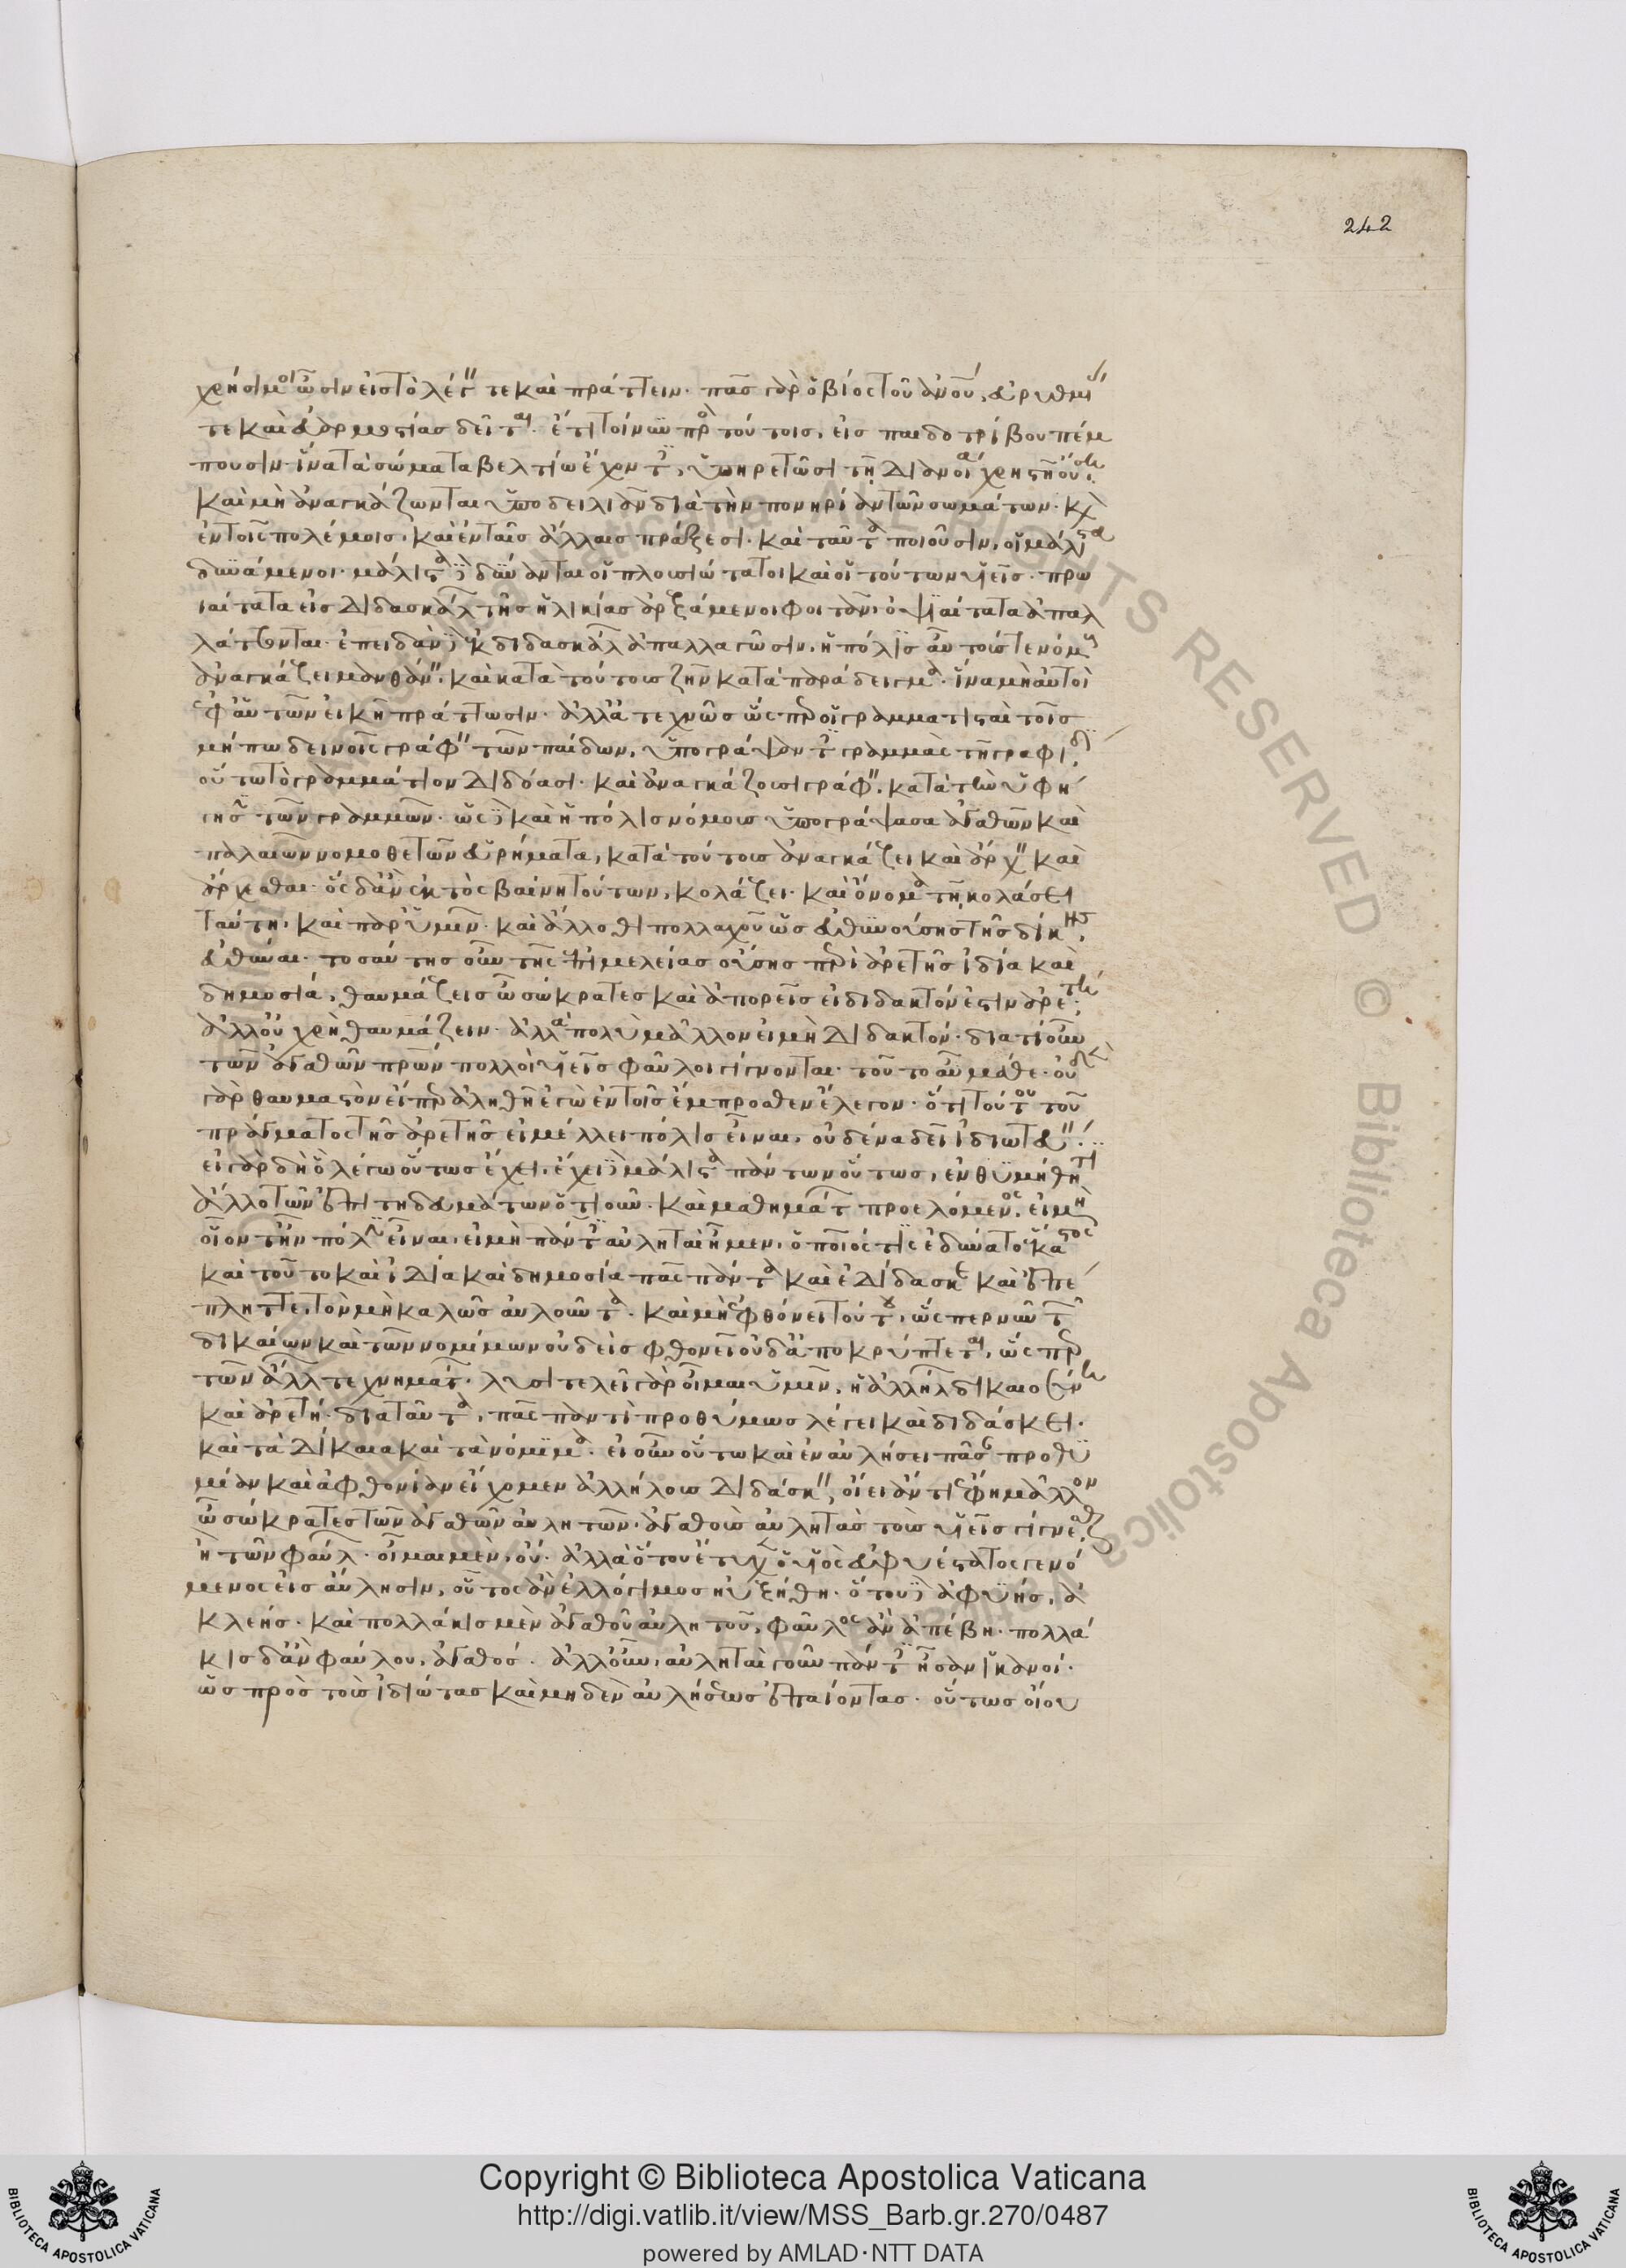 242
χρήσιμοι ὦσιν εἰς τὸ λέγειν τε καὶ πράττειν· πᾶς γὰρ ὁ βίος τοῦ ἀνου, εὐρυθμί
τε καὶ εὐαρμοστίας δεῖται· ἔτι τοίνυν πρὸς τούτοις, εἰς παιδοτρίβου πέμ
πουσιν ἵνα τὰ σώματα βελτίω ἔχοντες, ὑπηρετῶσι τῇ διανοίᾳ χρηστῇ οὔσῃ·
καὶ μὴ ἀναγκάζωνται ὑποδειλιᾶν διὰ τὴν πονηρίαν τῶν σωμάτων· καὶ
ἐν τοῖς πολέμοις· καὶ ἐν ταῖς ἄλλαις πράξεσι· καὶ ταῦτα ποιοῦσιν, οἱ μάλιστα
δυνάμενοι· μάλιστα δὲ δύνανται οἱ πλουσιώτατοι καὶ οἱ τούτων υἱεῖς· πρω
ιαίτατα εἰς διδασκάλων τῆς ἡλικίας ἀρξάμενοι φοιτᾶν, ὀψιαίτατα ἀπαλ
λάττονται· ἐπειδὰν δὲ ἐκ διδασκάλων ἀπαλλαγῶσιν, ἡ πόλις αὖ τούς τε νόμους
ἀναγκάζει μανθάνειν· καὶ κατὰ τούτους ζῆν κατὰ παράδειγμα· ἵνα μὴ αὐτοὶ
ἐφ' αὑτῶν εἰκῆ πράττωσιν· ἀλλ' ἀτεχνῶς ὥσπερ οἱ γραμματισταὶ τοῖς
μήπω δεινοῖς γράφειν τῶν παίδων, ὑπογράψαντες γραμμὰς τῇ γραφίδι,
οὕτω τὸ γραμμάτιον διδόασι· καὶ ἀναγκάζουσι γράφειν· κατὰ τὴν ὑφή
γησιν τῶν γραμμῶν· ὣς δὲ καὶ ἡ πόλις νόμους ὑπογράψασα ἀγαθῶν καὶ
παλαιῶν νομοθετῶν εὑρήματα, κατὰ τούτους ἀναγκάζει καὶ ἄρχειν καὶ
ἄρχεσθαι· ὃς δ' ἂν ἐκτὸς βαίνῃ τούτων, κολάζει· καὶ ὄνομα τῇ κολάσει
ταύτῃ, καὶ παρ' ὑμῖν· καὶ ἄλλοθι πολλαχοῦ ὡς εὐθυνούσης τῆς δίκης,
εὐθῦναι· τοσαύτης οὖν τῆς ἐπιμελείας οὔσης περὶ ἀρετῆς ἰδίᾳ καὶ
δημοσίᾳ, θαυμάζεις ὦ σώκρατες καὶ ἀπορεῖς εἰ διδακτόν ἐστιν ἀρετή·
ἀλλ' οὐ χρὴ θαυμάζειν· ἀλλὰ πολὺ μᾶλλον εἰ μὴ διδακτόν· διὰ τί οὖν
τῶν ἀγαθῶν πρων πολλοὶ υἱεῖς φαῦλοι γίγνονται· τοῦτο αὖ μάθε· οὐδὲν
γὰρ θαυμαστὸν εἴπερ ἀληθῆ ἐγὼ ἐν τοῖς ἔμπροσθεν ἔλεγον· ὅτι τούτου τοῦ
πράγματος τῆς ἀρετῆς εἰ μέλλει πόλις εἶναι, οὐδένα δεῖ ἰδιωτεύειν·
εἰ γὰρ δὴ ὃ λέγω οὕτως ἔχει, ἔχει δὲ μάλιστα πάντων οὕτως, ἐνθυμήθητι
ἄλλο τῶν ἐπιτηδευμάτων ὁτιοῦν· καὶ μαθημάτων προελόμενος, εἰ μὴ
οἷόν τ' ἦν πόλιν εἶναι, εἰ μὴ πάντες αὐληταὶ ἦμεν, ὁποῖός τις ἐδύνατο ἕκαστος
καὶ τοῦτο καὶ ἰδίᾳ καὶ δημοσίᾳ πᾶς πάντα καὶ ἐδίδασκε καὶ ἐπέ
πληττε, τὸν μὴ καλῶς αὐλοῦντα· καὶ μὴ ἐφθόνει τούτου, ὥσπερ νῦν τῶν
δικαίων καὶ τῶν νομίμων οὐδεὶς φθονεῖ οὐδ' ἀποκρύπτεται, ὥσπερ
τῶν ἄλλων τεχνημάτων· λυσιτελεῖ γὰρ οἶμαι ὑμῖν, ἡ ἀλλήλων δικαιοσύνη
καὶ ἀρετή· διὰ ταῦτα, πᾶς παντὶ προθύμως λέγει καὶ διδάσκει·
καὶ τὰ δίκαια καὶ τὰ νόμιμα· εἰ οὖν οὕτω καὶ ἐν αὐλήσει πᾶσαν προθυ
μίαν καὶ ἀφθονίαν εἴχομεν ἀλλήλους διδάσκειν, οἴει ἄν τι ἔφη μᾶλλον
ὦ σώκρατες τῶν ἀγαθῶν αὐλητῶν· ἀγαθοὺς αὐλητὰς τοὺς υἱεῖς γίγνεσθαι
ἢ τῶν φαύλων· οἶμαι μὲν, οὔ· ἀλλὰ ὅτου ἔτυχεν ὁ υἱὸς εὐφυέστατος γενό
μενος εἰς αὔλησιν, οὗτος ἂν ἐλλόγιμος ηὐξήθη· ὅτου δὲ ἀφυής, ἀ
κλεής· καὶ πολλάκις μὲν ἀγαθοῦ αὐλητοῦ, φαῦλος ἂν ἀπέβη· πολλά
κις δ' ἂν φαύλου, ἀγαθός· ἀλλ' οὖν, αὐληταὶ γοῦν πάντες ἦσαν ἱκανοί·
ὡς πρὸς τοὺς ἰδιώτας καὶ μηδὲν αὐλήσεως ἐπαΐοντας· οὕτως οἴου
Copyright © Biblioteca Apostolica Vaticana
http://digi.vatlib.it/view/MSS_Barb.gr.270/0487
powered by AMLAD·NTT DATA